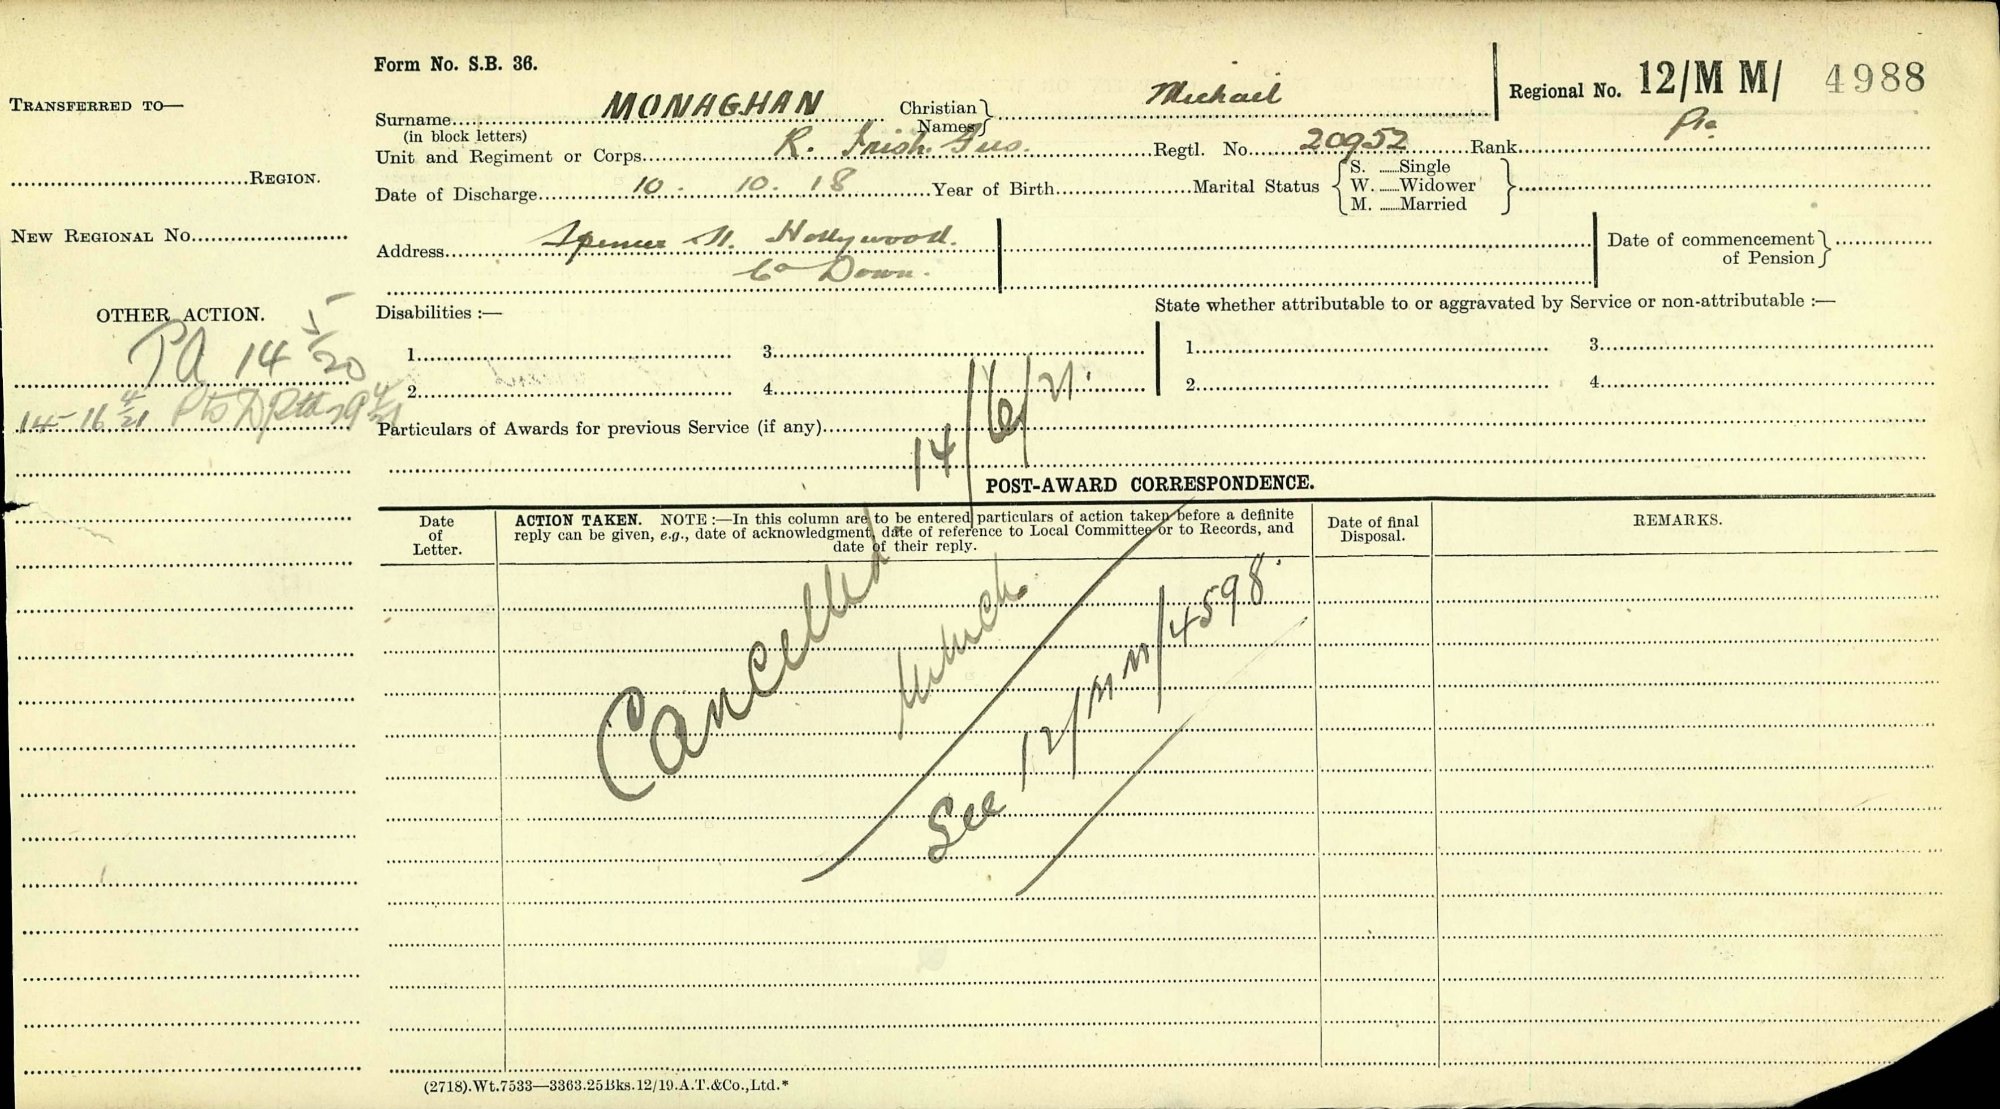 Form No. S.B. 36.
TRANSFERRED TO—
Surname MONAGHAN Christian Names Michael Regional No. 12/M M/ 4988
(in block letters)
Unit and Regiment or Corps R. Irish Fus. Regtl. No. 20952 Rank Pte
REGION.
Date of Discharge 10. 10. 18 Year of Birth Marital Status S. Single
W. Widower
M. Married
NEW REGIONAL No.
Address Spencer St. Hollywood.
Co Down.
Date of commencement of Pension
OTHER ACTION.
PA 14 5/20
14-16 4/21
Disabilities :— State whether attributable to or aggravated by Service or non-attributable :—
1. 3. 1. 3.
2. 4. 2. 4.
Particulars of Awards for previous Service (if any)
14/6/21.
POST-AWARD CORRESPONDENCE.
Date of Letter.
ACTION TAKEN. NOTE :—In this column are to be entered particulars of action taken before a definite
reply can be given, e.g., date of acknowledgment, date of reference to Local Committee or to Records, and
date of their reply.
Date of final Disposal.
REMARKS.
Cancelled.
See 12/MM/4598.
(2718).Wt.7533—3363.25Bks.12/19.A.T.&Co.,Ltd.*